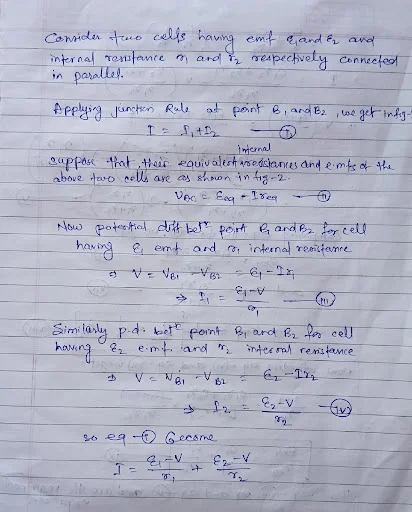 Consider two cells having emf ε₁ and ε₂ and
internal resistance r₁ and r₂ respectively connected
in parallel.
Applying junction Rule at point B₁ and B₂, we get in fig-
I = I₁ + I₂ — (I)
suppose that, their equivalent internal resistances and e.mfs of the
above two cells are as shown in fig-2.
V_BC = E_eq - I r_eq — (II)
Now potential diff betⁿ point B₁ and B₂ for cell
having ε₁ emf and r₁ internal resistance
⇒ V = V_B1 - V_B2 = ε₁ - I r₁
⇒ I₁ = (ε₁ - V)/r₁ — (III)
Similarly p.d. betⁿ point B₁ and B₂ for cell
having ε₂ e.mf. and r₂ internal resistance
⇒ V = V_B1 - V_B2 = ε₂ - I r₂
⇒ I₂ = (ε₂ - V)/r₂ — (IV)
so eq - (I) become
I = (ε₁ - V)/r₁ + (ε₂ - V)/r₂